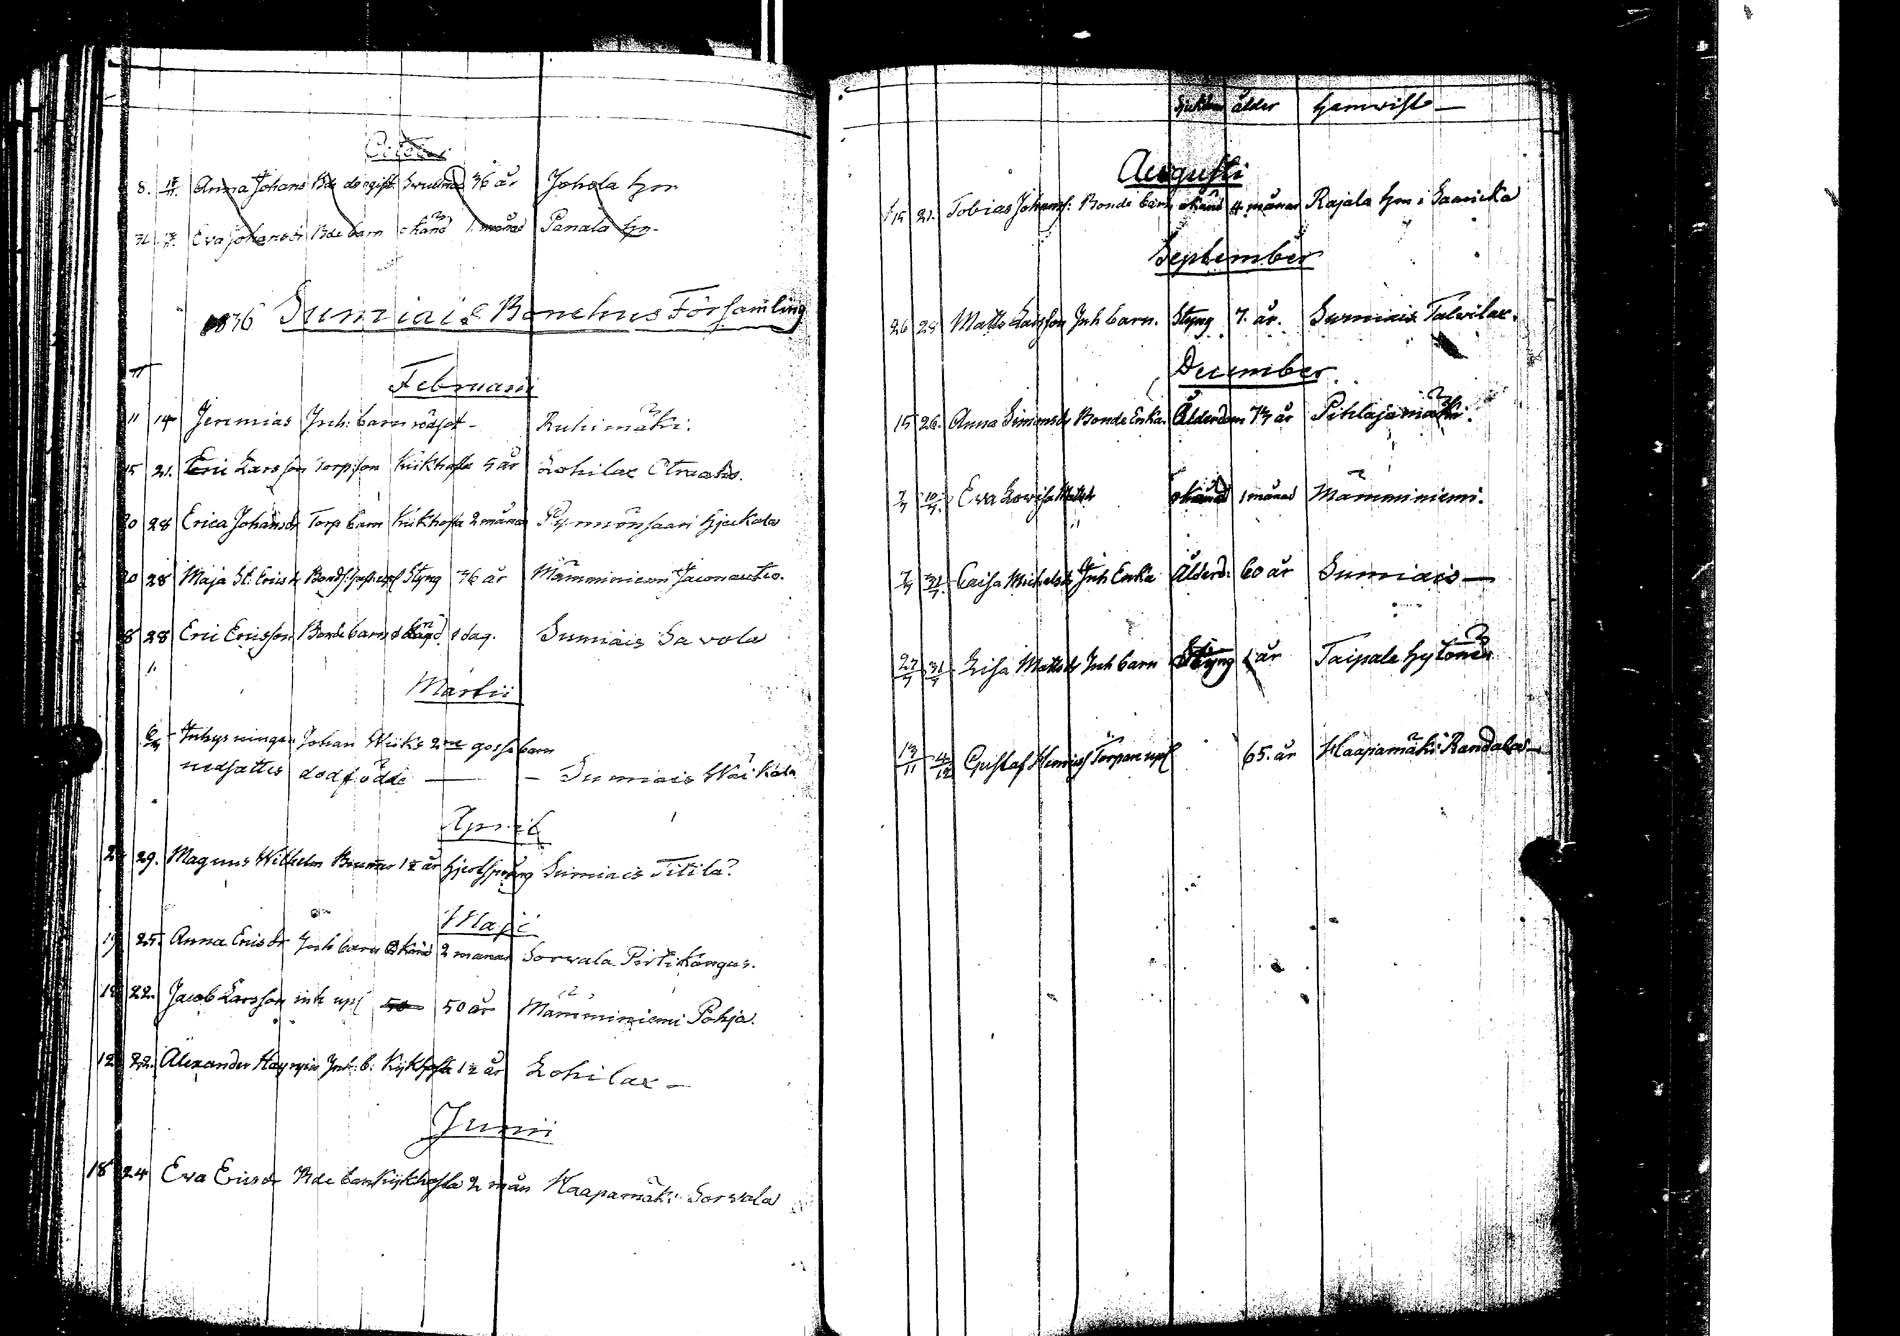 October
8. Anna Johans Bde dr ogift Swulnad 36 år Johola hm
31 Eva Johansdr Bde barn okänd 1 månad Panala hm
1836 Sumiais Bönehus Församling
Februarii
11 14 Jeremias Inh: barn rödsot - Ruhimäki.
15 21. Eric Larsson Torp:son Kikhosta 5 år Lohilax
20 28 Erica Johansdr Torp barn Kikhosta 2 månar Pyymönsaari
20 28 Maja St. Ericsdr Styng 36 år Mämminiemi
8 28 Eric Ericsson Bonde barn okänd 1 dag. Sumiais Savola
Martii
6/3 Inhysningen Johan Wiiks 2ne gossebarn
nedsattes dödfödde — - Sumiais
April
2 29. Magnus Wilhelm 1½ år hjertsprång Sumiais Titila?
Maji
19 25. Anna Ericsdr Inh barn okänd 2 månar Sorvala Pirtikangas.
18 22. Jacob Larsson inh 50 50 år Mämminiemi Pohja.
12 22. Alexander Inh: b: Kikhosta 1½ år Lohilax -
Junii
18 24 Eva Ericsdr Bde barn Kikhosta 2 mån Haapamäki Sorvala
Sjukdom ålder Hemvist —
Augusti
15 21. Tobias Johans: Bonde barn okänd 4 månar Rajala hm i Saarickа
September
26 28 Matts Larsson Inh barn. Styng 7. år. Sumiais Talvilax.
December
15 26. Anna Simonsdr Bonde Enka Ålderdom 73 år Pihlajamäki.
7/7 10/7 Eva Lovisa Mattsdr okänd 1 månad Mämminiemi.
7/7 31/7 Caisa Michelsdr Inh Enka Ålderd: 60 år Sumiais —
27/7 31/7 Lisa Mattsdr Inh barn Styng 1 år Taipale Hytönen
13/11 4/12 Gustaf Henricss 65. år Haapamäki Randala —